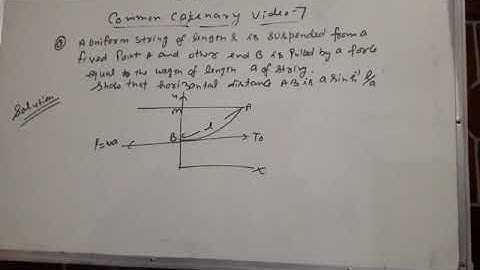 Common Catenary Video-7
Q A Uniform string of length l is suspended from a
fixed Point A and other end B is Pulled by a force
equal to the weight of length a of string.
Show that horizontal distance AB is a sinh⁻¹ l/a
Solution
y
M
A
l
F=wa
B
T₀
X